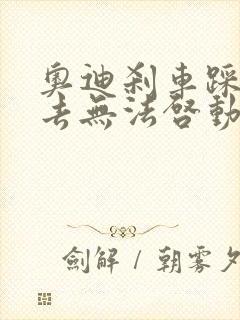 奧迪剎車踩
去無法啓動
劍解 / 朝霧夕